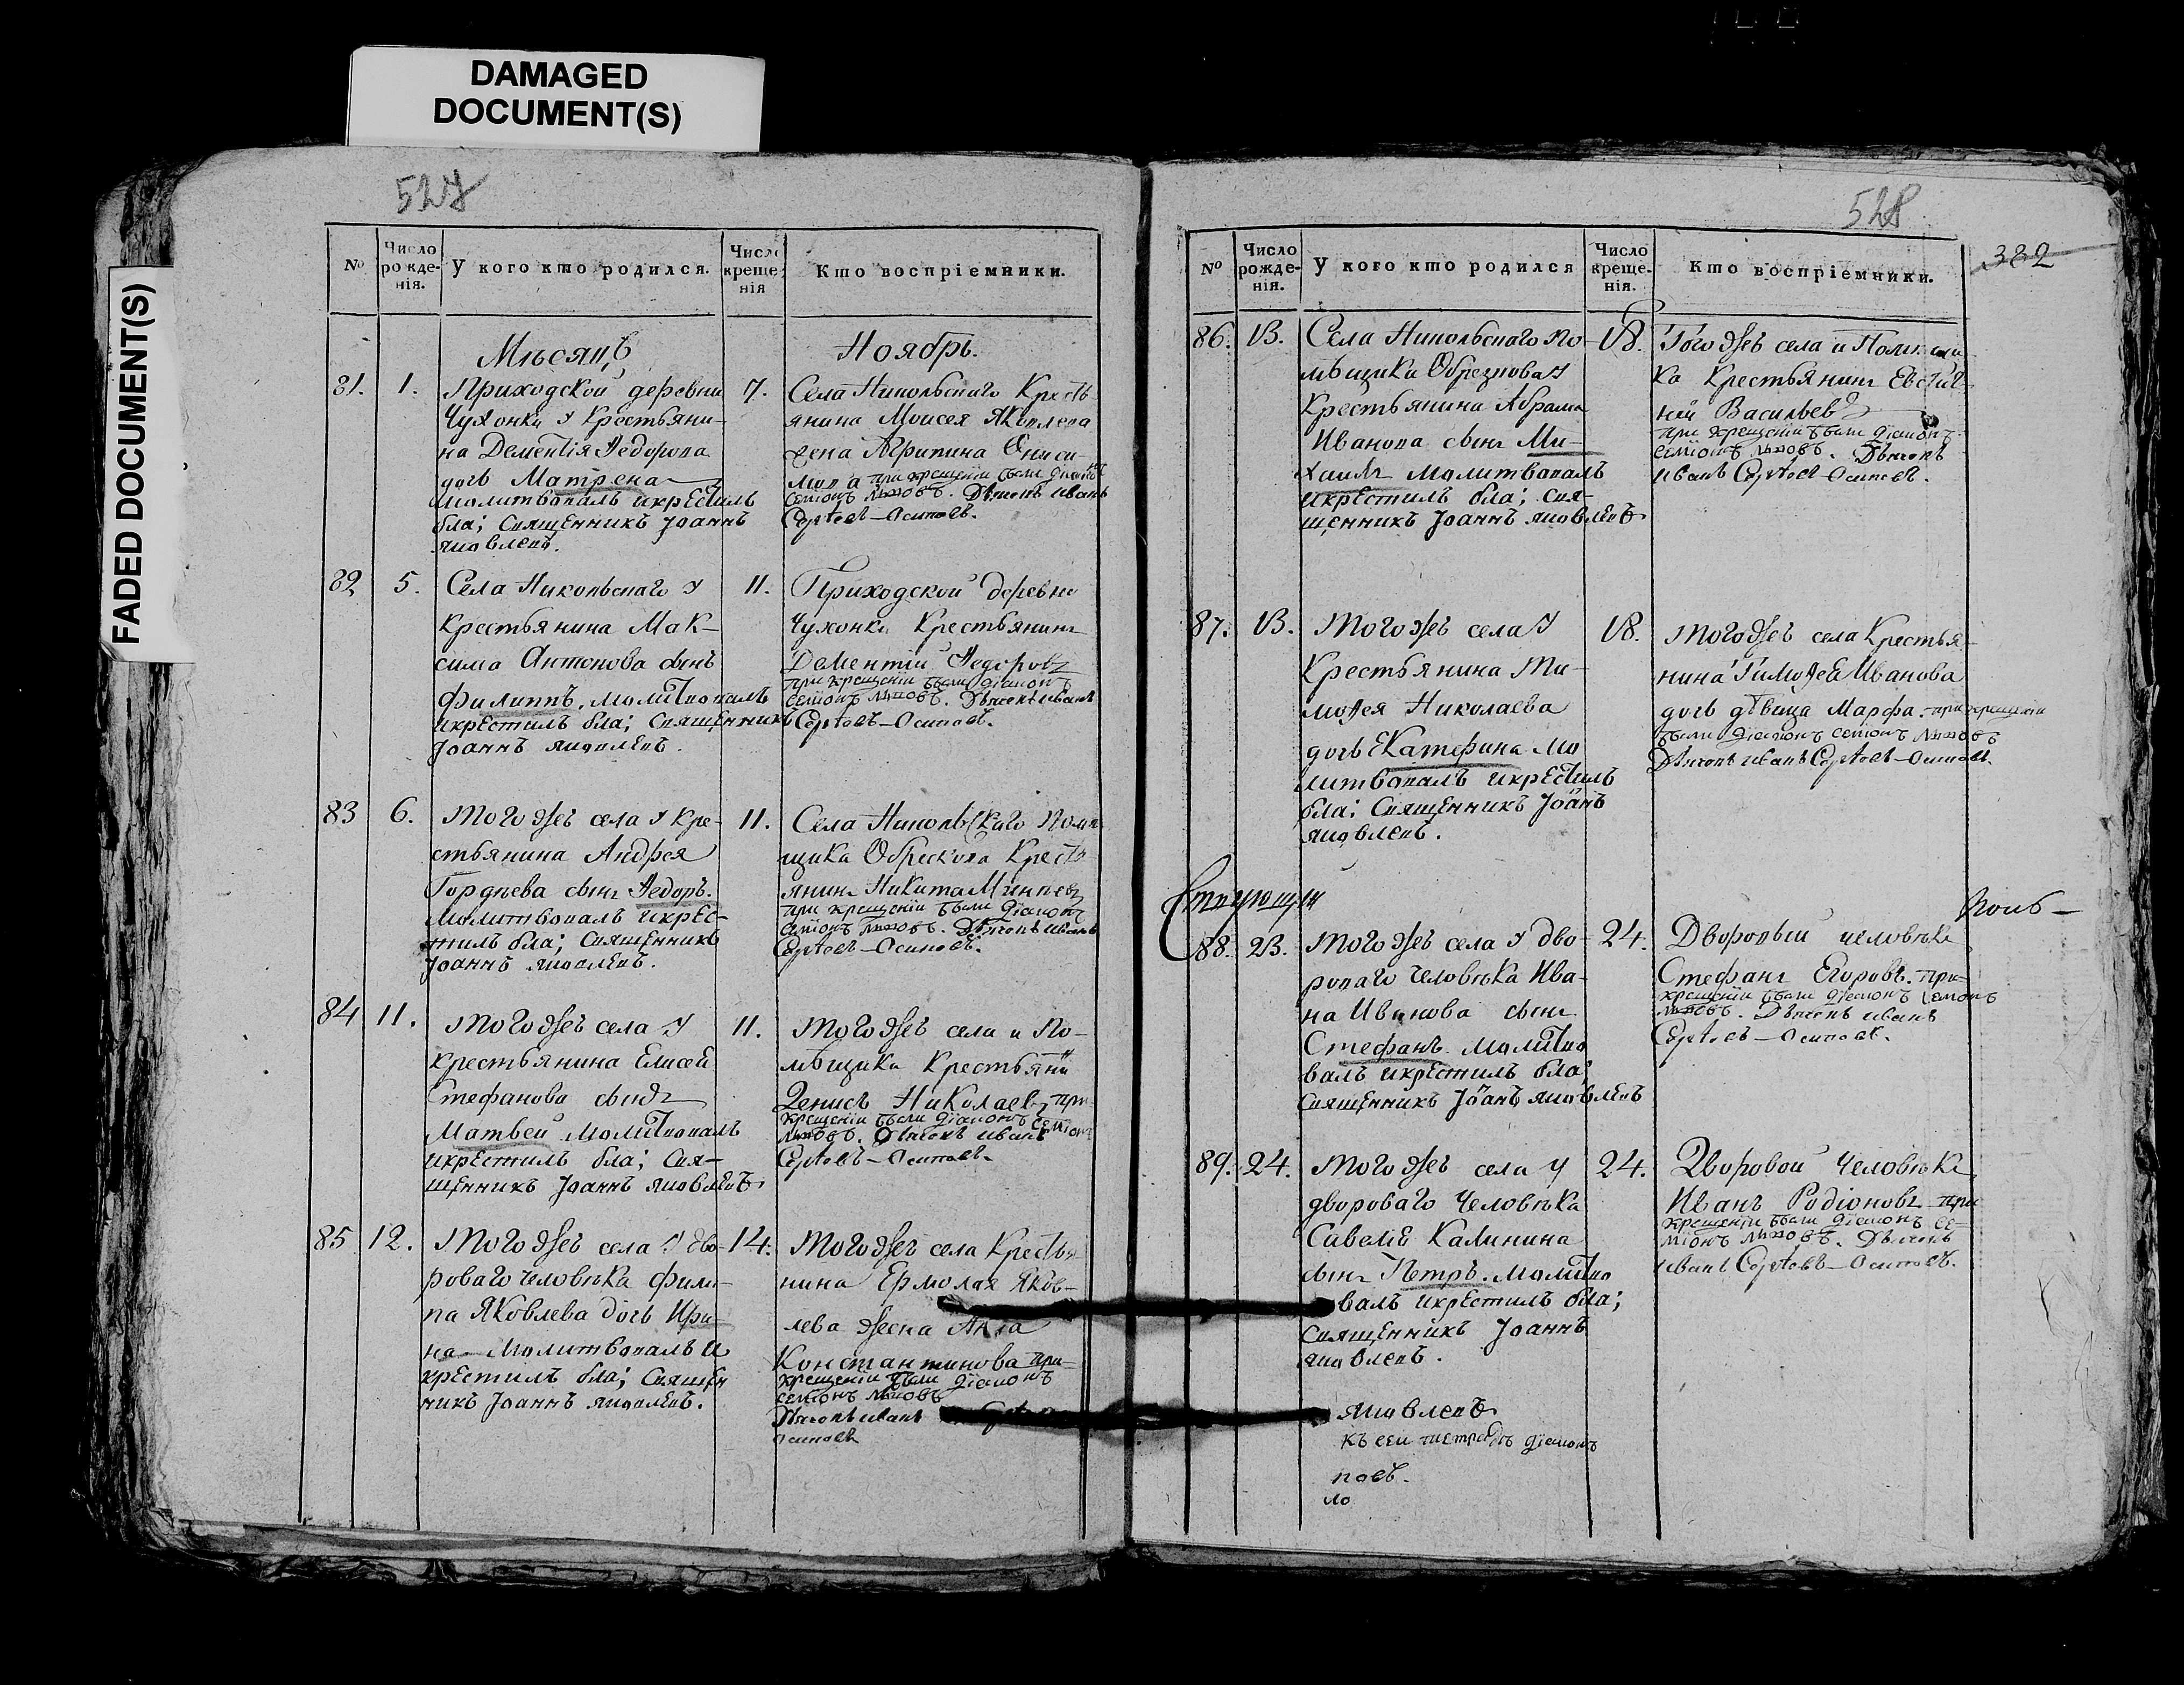 DAMAGED
DOCUMENT(S)
FADED DOCUMENT(S)
527
№
Число рожденія.
У кого кто родился.
Число крещенія
Кто воспріемники.
Мѣсяцъ
Ноябрь.
81. 1.
Приходской деревни
Чухонки у крестьяни-
на Дементія Ѳедорова
дочь Матрена
молитвовалъ икрестилъ
бла; Священникъ Іоаннъ
яковлевъ.
7.
Села Никольскаго Кресть
янина Моисея Яковлева
жена Агрипина Ониси-
мова при крещеніи были діаконъ
семіонъ Дьячокъ иванъ
Сергеевъ-Осиповъ.
82 5.
Села Никольскаго у
Крестьянина Мак-
сима Антонова сынъ
Филиппъ. молитвовалъ
икрестилъ бла; Священникъ
Іоаннъ яковлевъ.
11.
Приходской деревни
Чухонки Крестьянинъ
Дементій Ѳедоровъ
при крещеніи были діаконъ
семіонъ Дьячокъ иванъ
Сергеевъ-Осиповъ.
83 6.
Тогожъ села у кре-
стьянина Андрея
Гордѣева сынъ Ѳедоръ.
молитвовалъ икрес-
тилъ бла; священникъ
Іоаннъ яковлевъ.
11.
Села Никольскаго помѣ
щика Обрескова Кресть
янинъ Никита
при крещеніи были діаконъ
семіонъ Дьячокъ иванъ
Сергеевъ-Осиповъ.
84 11.
Тогожъ села у
крестьянина Елисей
Стефанова сынъ
Матвей молитвовалъ
икрестилъ бла; Свя-
щенникъ Іоаннъ яковлевъ
11.
Тогожъ села и По-
мѣщика Крестьяни
Денисъ Николаевъ при
крещеніи были діаконъ семіонъ
Дьячокъ иванъ
Сергеевъ-Осиповъ.
85 12.
Тогожъ села у дво-
роваго человѣка фили-
па Яковлева дочь Ири-
на молитвовалъ и
крестилъ бла; Священ
никъ Іоаннъ яковлевъ.
14.
Тогожъ села Крестья
нина Ермолая Яков-
лева жена Анна
Константинова при
крещеніи были діаконъ
семіонъ
Дьячокъ иванъ
Осиповъ
528
382
№
Число рожденія.
У кого кто родился
Число крещенія.
Кто воспріемники.
86. 13.
Села Никольскаго по-
мѣщика Обрезкова у
Крестьянина Абрама
Иванова сынъ Ми-
хаилъ молитвовалъ
икрестилъ бла; свя-
щенникъ Іоаннъ яковлевъ
18.
Тогожъ села и Помѣщи
ка Крестьянинъ Евстиг-
ней Васильевъ
при крещеніи были діаконъ
семіонъ Дьячокъ
иванъ Сергеевъ-Осиповъ.
87. 13.
Тогожъ села у
Крестьянина Ти-
моѳея Николаева
дочь Екатерина мо
литвовалъ икрестилъ
бла; Священникъ Іоанъ
яковлевъ.
18.
Тогожъ села Крестья-
нина Тимоѳея Иванова
дочь дѣвица Марфа. при крещеніи
были діаконъ семіонъ
Дьячокъ иванъ Сергеевъ-Осиповъ.
88. 23.
Тогожъ села у дво-
роваго человѣка Ива-
на Иванова сынъ
Стефанъ. молитво
валъ икрестилъ бла;
священникъ Іоанъ яковлевъ
24.
Дворовый человѣкъ
Стефанъ Егоровъ. при-
крещеніи были діаконъ семіонъ
Дьячокъ иванъ
Сергеевъ-Осиповъ.
89. 24.
Тогожъ села у
двороваго человѣка
Савелія Калинина
сынъ Петръ. молитво
валъ икрестилъ бла;
священникъ Іоаннъ
яковлевъ.
24.
Дворовой человѣкъ
Иванъ Родіоновъ при
крещеніи были діаконъ се-
міонъ Дьячокъ
иванъ Сергеевъ-Осиповъ.
яковлевъ
къ сей діаконъ